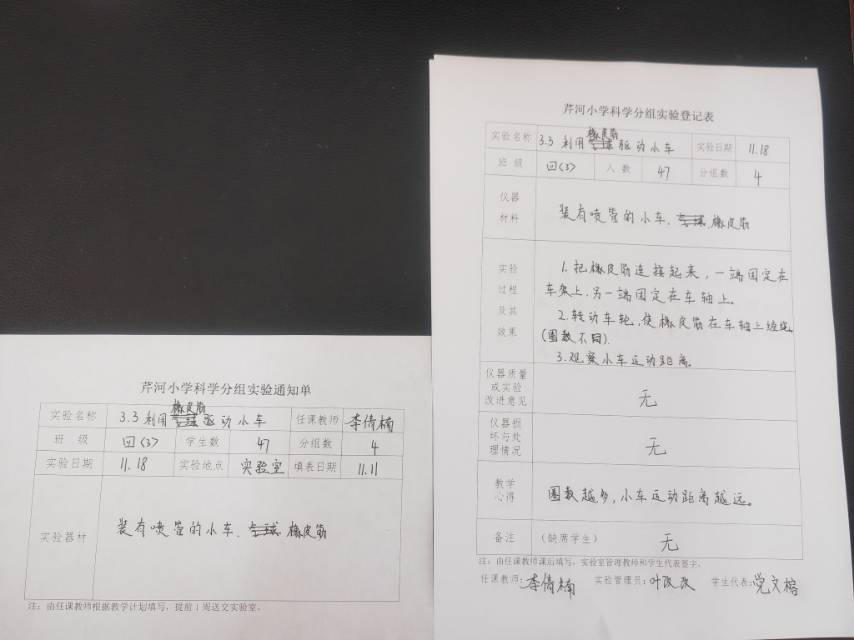 芹河小学科学分组实验通知单
实验名称 3.3 利用橡皮筋驱动小车 任课教师 李倩楠
班 级 四(3) 学生数 47 分组数 4
实验日期 11.18 实验地点 实验室 填表日期 11.11
实验器材 装有喷管的小车、橡皮筋
注：由任课教师根据教学计划填写，提前1周送交实验室。
芹河小学科学分组实验登记表
实验名称 3.3 利用橡皮筋驱动小车 实验日期 11.18
班 级 四(3) 人 数 47 分组数 4
仪器材料 装有喷管的小车、橡皮筋
实验过程及其效果
1.把橡皮筋连接起来，一端固定在
车架上，另一端固定在车轴上。
2.转动车轮，使橡皮筋在车轴上缠绕
(圈数不同).
3.观察小车运动距离。
仪器质量或实验改进意见 无
仪器损坏与处理情况 无
教学心得 圈数越多，小车运动距离越远。
备注 (缺席学生) 无
注：由任课教师课后填写，实验室管理教师和学生代表签字。
任课教师：李倩楠 实验管理员：叶改改 学生代表：党文榕